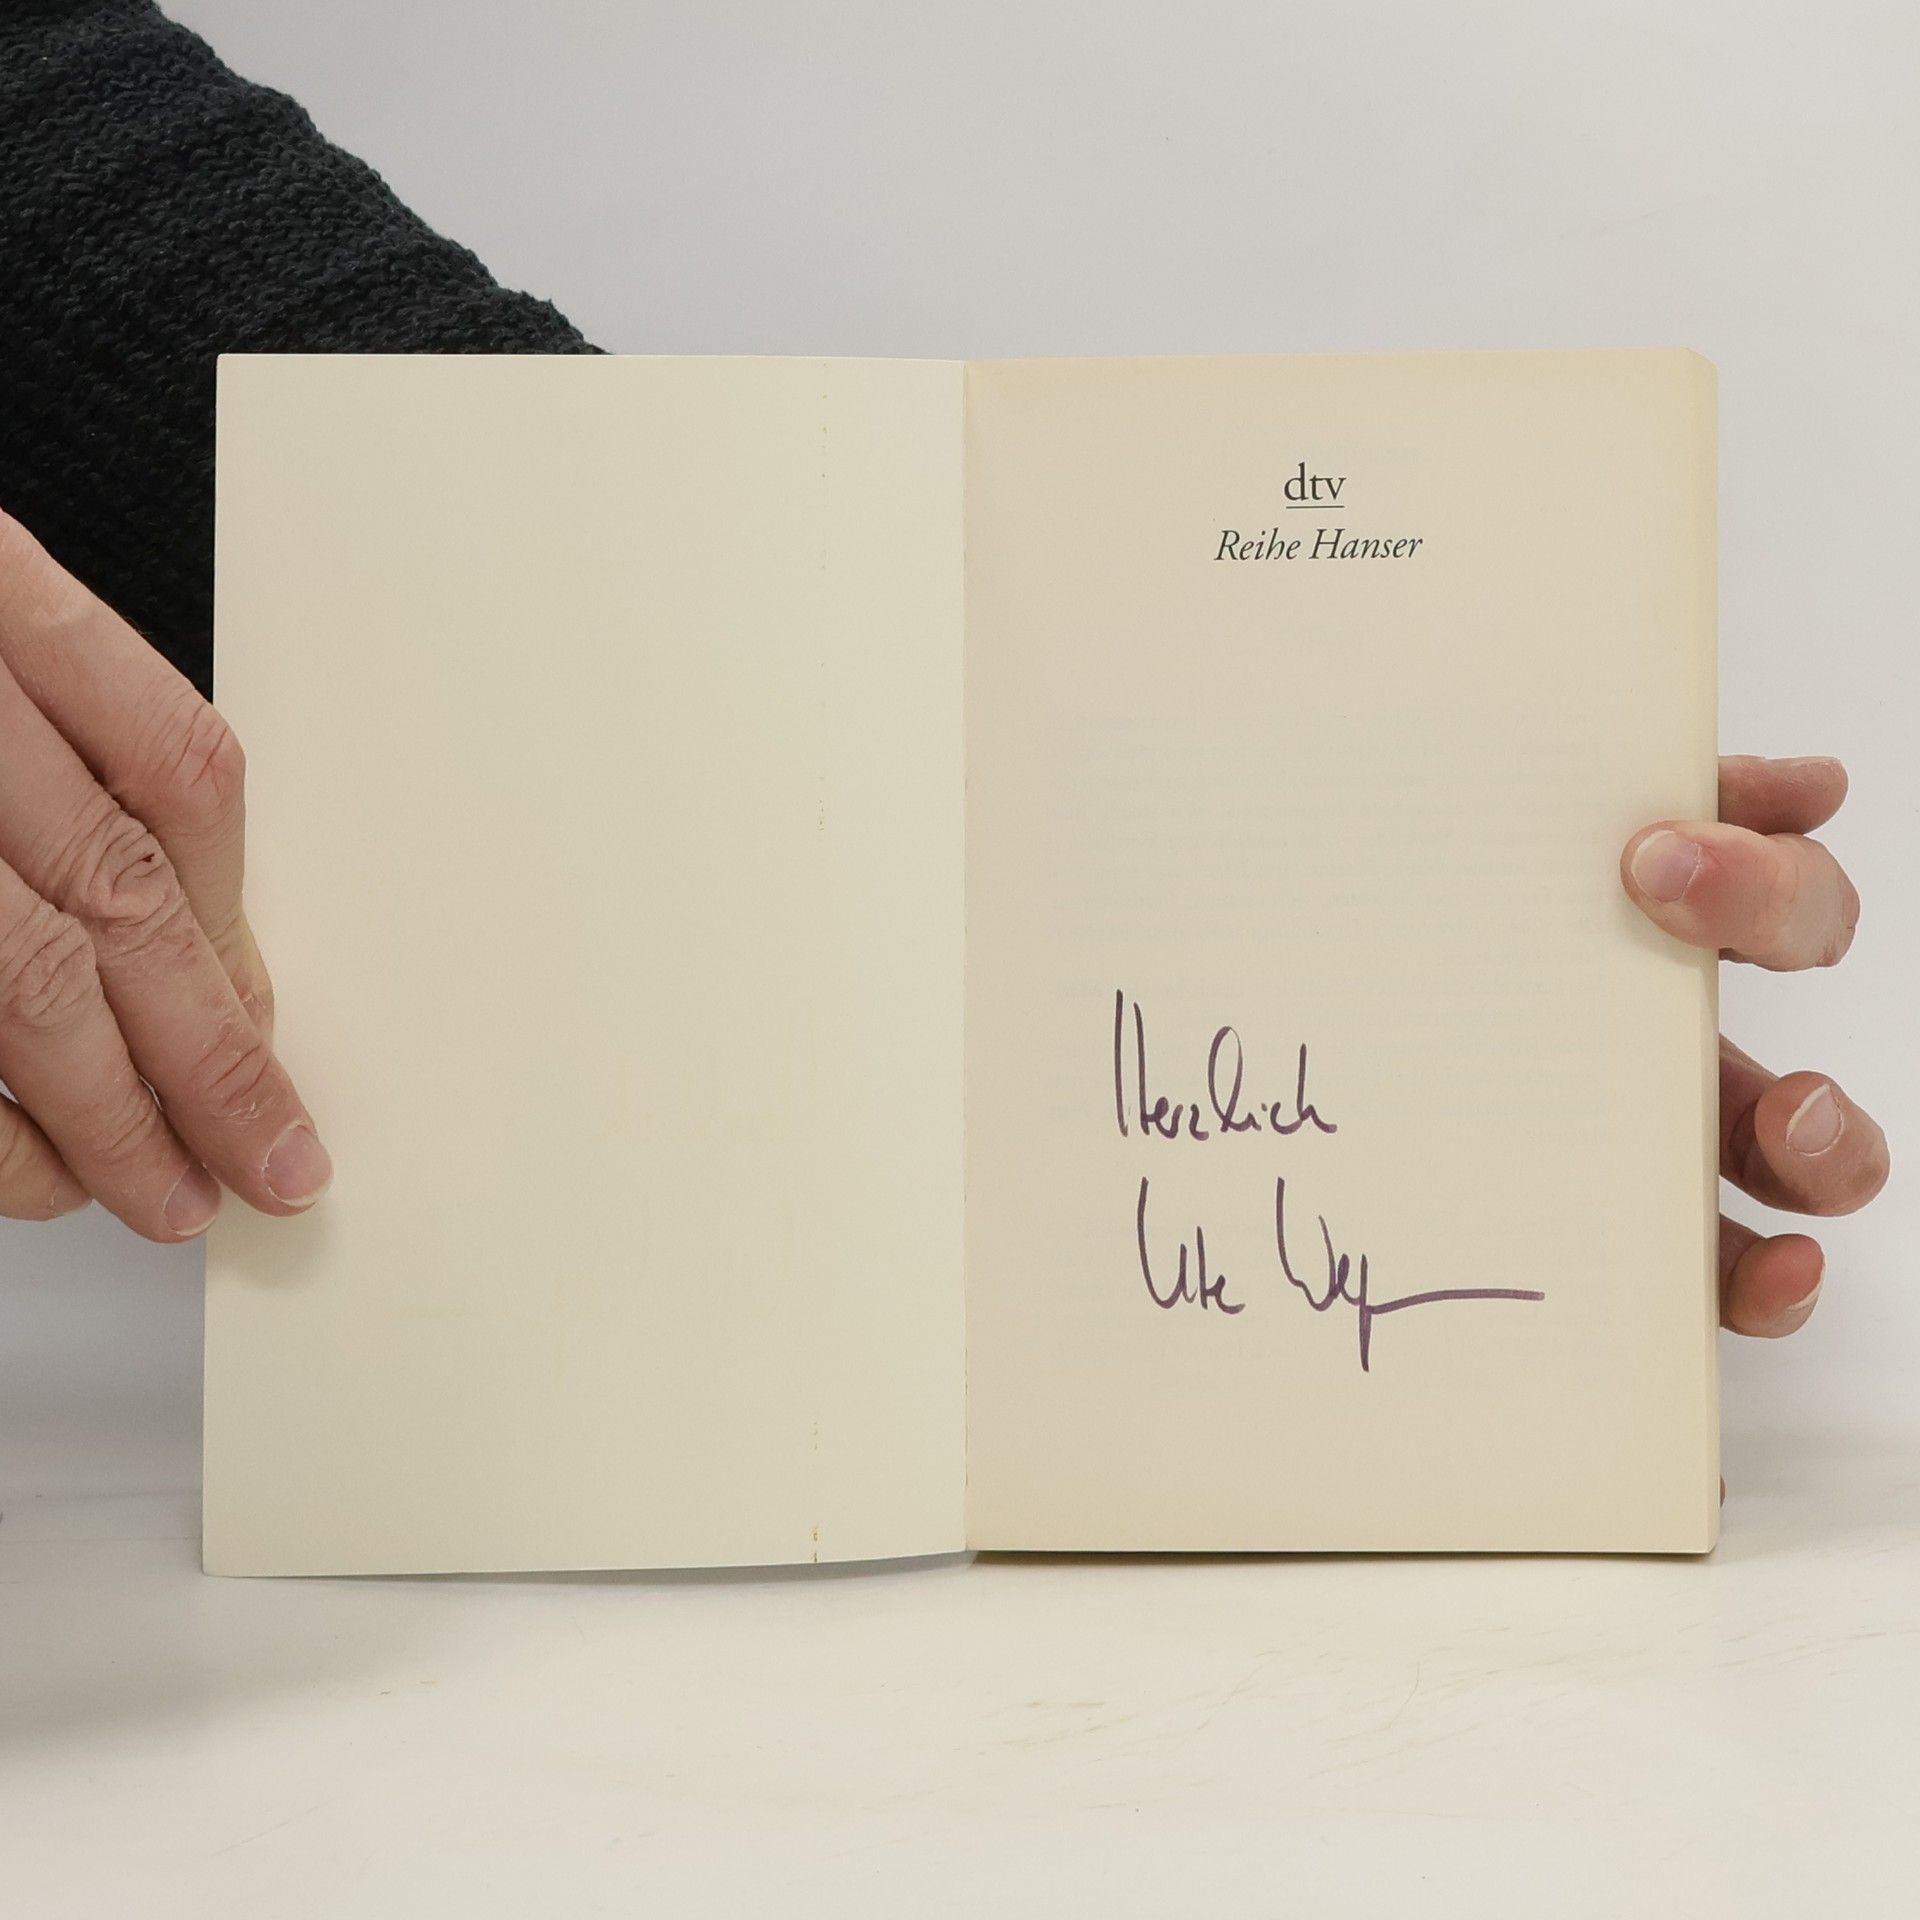 dtv
Reihe Hanser
Herzlich
Ute Weg